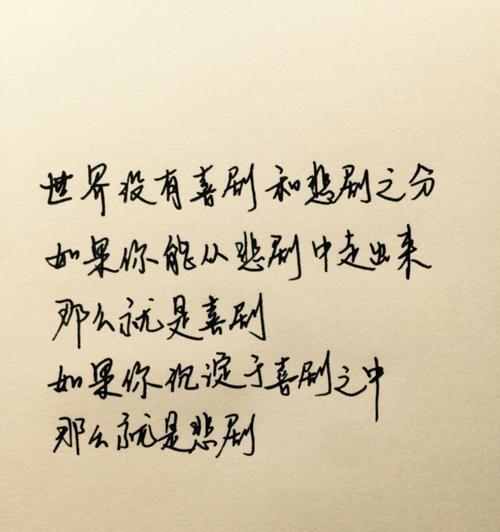 世界没有喜剧和悲剧之分
如果你能从悲剧中走出来
那么就是喜剧
如果你沉淀于喜剧之中
那么就是悲剧